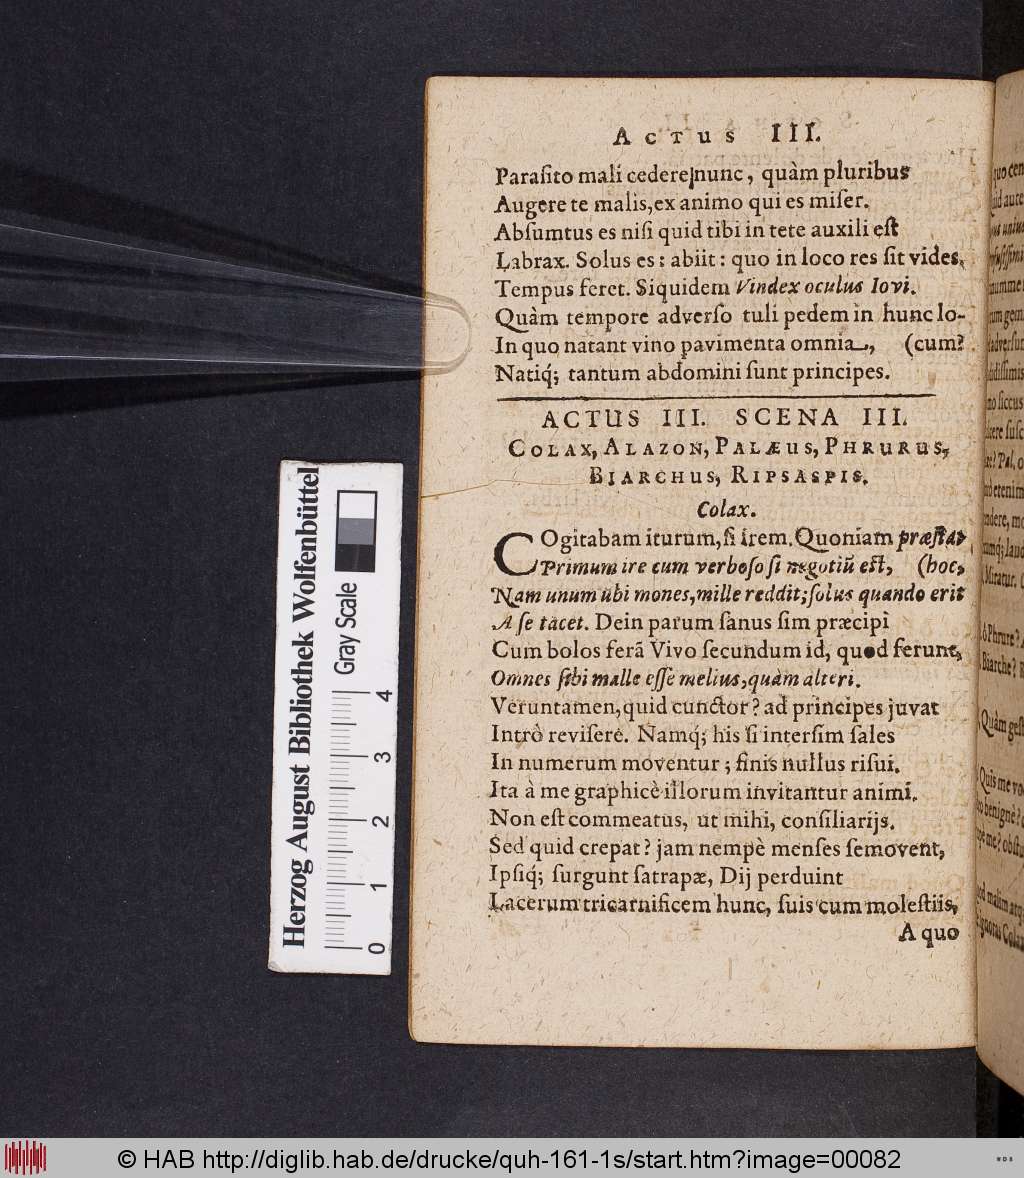 ACTUS III.
Paraſito mali cedere nunc, quàm pluribus
Augere te malis, ex animo qui es miſer.
Abſumtus es niſi quid tibi in tete auxili eſt
Labrax. Solus es: abiit: quo in loco res ſit vides,
Tempus feret. Siquidem Vindex oculus Iovi.
Quàm tempore adverſo tuli pedem in hunc lo-
In quo natant vino pavimenta omnia, (cum?
Natiq; tantum abdomini ſunt principes.
ACTUS III. SCENA III.
COLAX, ALAZON, PALÆUS, PHRURUS,
BIARCHUS, RIPSASPIS.
Colax.
COgitabam iturum, ſi irem. Quoniam præſtat
Primum ire cum verboſo ſi negotiũ eſt, (hoc,
Nam unum ubi mones, mille reddit; ſolus quando erit
A ſe tacet. Dein parum ſanus ſim præcipi
Cum bolos ferã Vivo ſecundum id, quod ferunt,
Omnes ſibi malle eſſe melius, quàm alteri.
Veruntamen, quid cunctor? ad principes juvat
Intrò reviſere. Namq; his ſi interſim ſales
In numerum moventur; finis nullus riſui.
Ita à me graphicè illorum invitantur animi.
Non eſt commeatus, ut mihi, conſiliarijs.
Sed quid crepat? jam nempè menſes ſemovent,
Ipſiq; ſurgunt ſatrapæ, Dij perduint
Lacerum tricarnificem hunc, ſuis cum moleſtiis,
A quo
Herzog August Bibliothek Wolfenbüttel
Gray Scale
0 1 2 3 4
© HAB http://diglib.hab.de/drucke/quh-161-1s/start.htm?image=00082